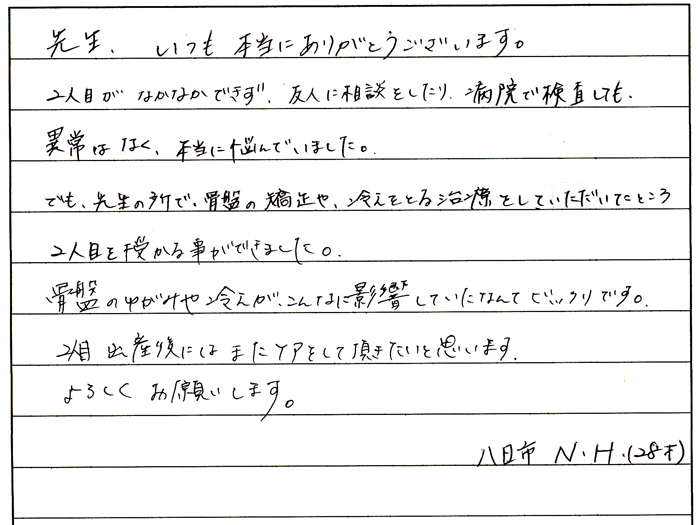 先生、いつも本当にありがとうございます。
2人目がなかなかできず、友人に相談をしたり、病院で検査しても、
異常はなく、本当に悩んでいました。
でも、先生の所で、骨盤の矯正や、冷えをとる治療をしていただいてたところ
2人目を授かる事ができました。
骨盤のゆがみや冷えが、こんなに影響していたなんてビックリです。
2人目出産後にはまたケアをして頂きたいと思います。
よろしくお願いします。
八日市 N.H.(28才)